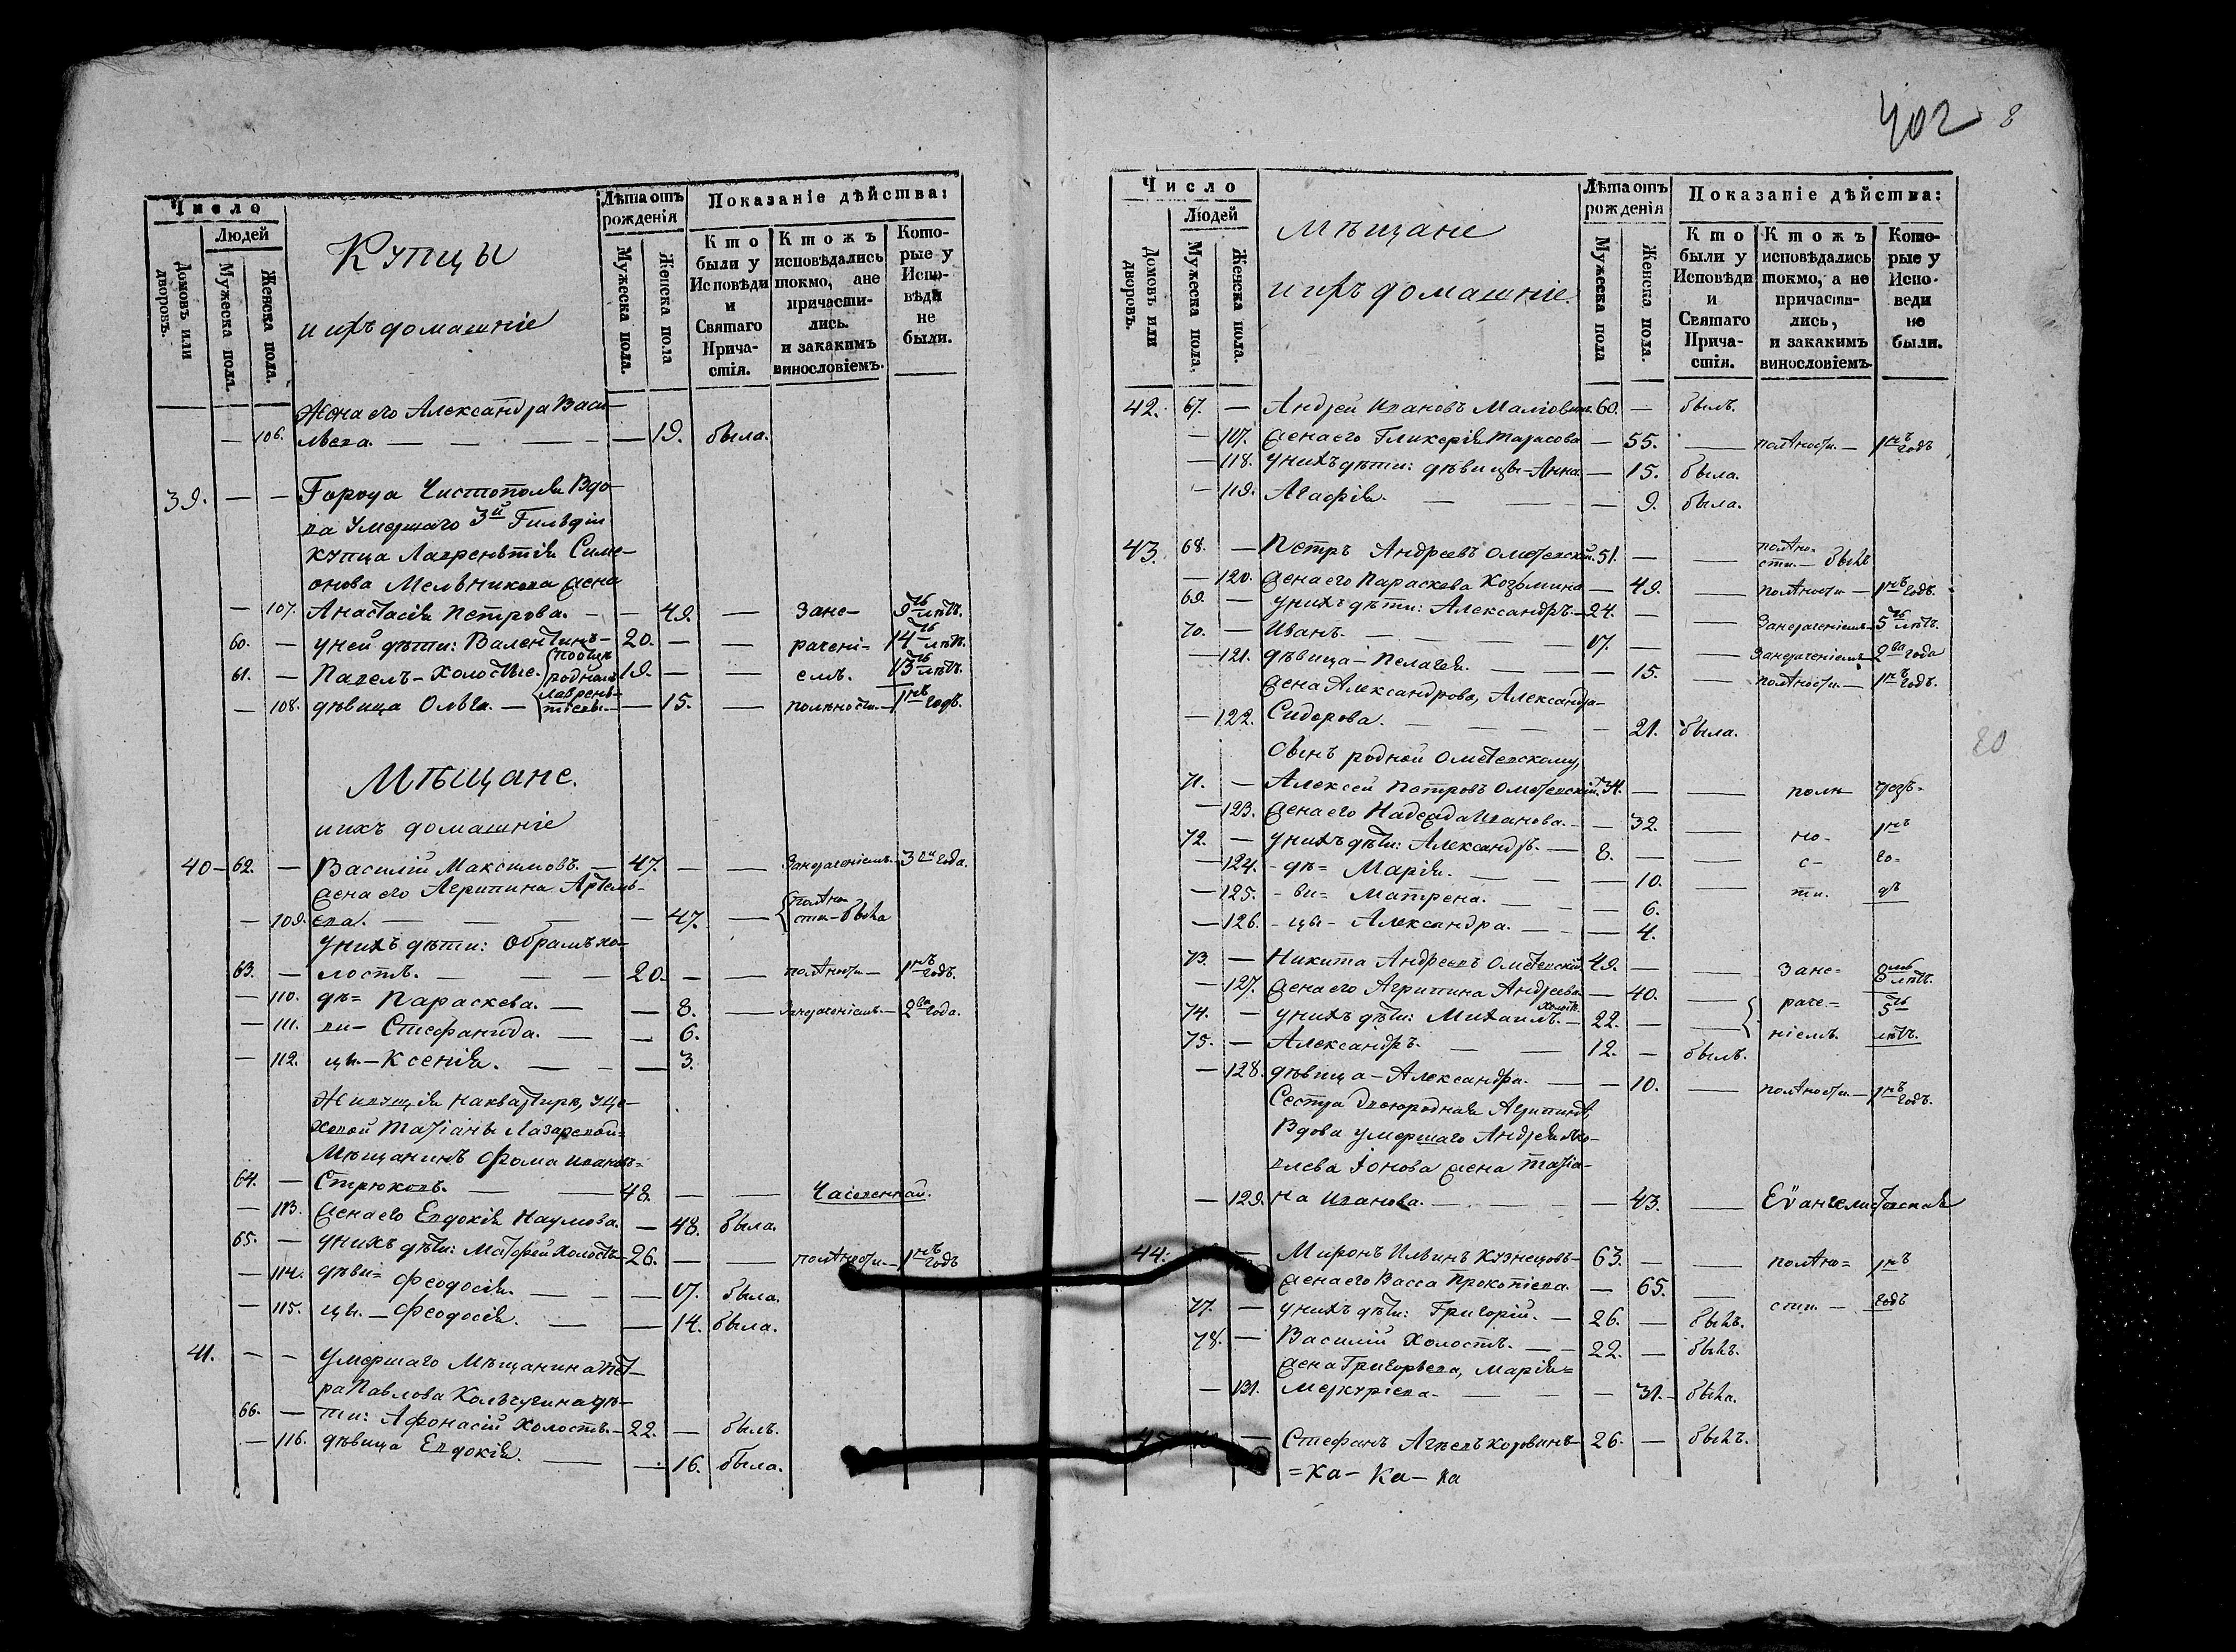 Число
Людей
Домовъ или дворовъ.
Мужеска пола.
Женска пола.
Купцы
и ихъ домашніе
Лѣта отъ рожденія
Мужеска пола.
Женска пола
Показаніе дѣйства:
Кто были у Исповѣди и Святаго Причастія.
Ктожъ исповѣдались токмо, а не причастились. и за какимъ винословіемъ.
Которые у Исповѣди не были.
Жена его Александра Васи-
— 106. льева. — — — — 19. была.
39. — — Города Чистополя Вдо-
ва умершаго 3й Гильдіи
купца Лаврентія Симе-
онова Мельникова жена
— 107. Анастасія Петрова. — — 49. — Зане- 9ть лѣтъ.
60. — у ней дѣти: Валентинъ — 20. — — рачені- 14ть лѣтъ.
61. — Павелъ — холостые. 19. — — емъ. 13ть лѣтъ.
— 108. дѣвица Ольга. — — 15. — полѣности — 1нъ годъ.
Мѣщане.
и ихъ домашніе
40 — 62. — Василій Максимовъ. — 47. — — Занераченіемъ — 3 ри года.
жена его Агрипина Артемь-
— 109. ева. — — — — 47. — полѣно сти —
у нихъ дѣти: Обрамъ хо-
63. — лостъ. — — — 20. — — полѣности — 1нъ годъ.
— 110. дѣ= Параскева. — — 8. — Занераченіемъ — 2ва года.
— 111. ви- Стефанида. — — 6.
— 112. цы. — Ксенія. — — — 3.
Живущія на квартире, у Це-
ховой Татіаны Лазаревой=
Мѣщанинъ Фома Ивановъ=
64. — Стрюковъ. — — 48. — —
— 113. жена его Евдокія Наумова. — 48. была.
65. — у нихъ дѣти: Матфей холостъ — 26. — — полѣности — 1нъ годъ
— 114. дѣви= Феодосія. — — — 17. была.
— 115. цы. — Феодосія. — — 14. была.
41. — — умершаго Мѣщанина Пет-
ра Павлова Кольчугина дѣ-
66. — ти: Афонасій холостъ. — 22. — былъ.
— 116. дѣвица Евдокія. — — 16. была.
402 8
Число
Людей
Домовъ или дворовъ.
Мужеска пола.
Женска пола.
Мѣщане
и ихъ домашніе.
Лѣта отъ рожденія
Мужеска пола
Женска пола.
Показаніе дѣйства:
Кто были у Исповѣди и Святаго Причастія.
Ктожъ исповѣдались токмо, а не причастились, и за какимъ винословіемъ.
Которые у Исповеди не были.
42. 67. — Андрей Ивановъ 60. — былъ.
— 107. жена его Гликерія Тарасова — 55. — полѣности — 1нъ годъ
— 118. у нихъ дѣти: дѣвицы — Анна — 15. была.
— 119. Агафія. — — — 9. была.
43. 68. — Петръ Андреевъ Ометевскій. 51. — — полѣно- сти —
— 120. жена его Параскева Козьмина — 49. — полѣности — 1нъ годъ.
69. — у нихъ дѣти: Александръ. — 24. — — Занераченіемъ — 5ть лѣтъ.
70. — Иванъ. — — — 17. — — Занераченіемъ — 2ва года
— 121. дѣвица — Пелагея. — — 15. — полѣности — 1нъ годъ.
жена Александрова, Александра-
— 122. Сидорова. — — — 21. была.
Сынъ родной Ометевскому,
71. — Алексей Петровъ Ометевскій. 34. — — полѣ
— 123. жена его Надежда Иванова. — 32. — но- 1нъ
72. — у нихъ дѣти: Александръ. — 8. — — с- го=
— 124. — дѣ= Марія. — — — 10. — ти. дъ
— 125. — ви= Матрена. — — — 6.
— 126. — цы — Александра. — — — 4.
20
73. — Никита Андреевъ Ометевскій. 49. — — зане= 8мь лѣтъ.
— 127. жена его Агрипина Андреева — 40. — раче= 5ть
74. — у нихъ дѣти: Михаилъ. холостъ — 22. — — ніемъ. лѣтъ.
75. — Александръ. — — 12. — былъ.
— 128. дѣвица — Александра. — — 10. — полѣности — 1нъ годъ.
Сестра двоюродная Агрипинѣ,
Вдова умершаго Андрея Яко-
влева Іонова жена Татіа-
— 129. на Иванова. — — — 43. —
44. Миронъ Ильинъ Кузнецовъ — 63. — — полѣно= 1нъ
жена его Васса Прокопіева. — 65. — сти. — годъ
77. — у нихъ дѣти: Григорій. — 26. — былъ.
78. — Василій холостъ. — — 22. — былъ.
жена Григорьева, Марія=
— 131. Меркуріева. — — — 31. — была.
45. — Стефанъ 26. — былъ.